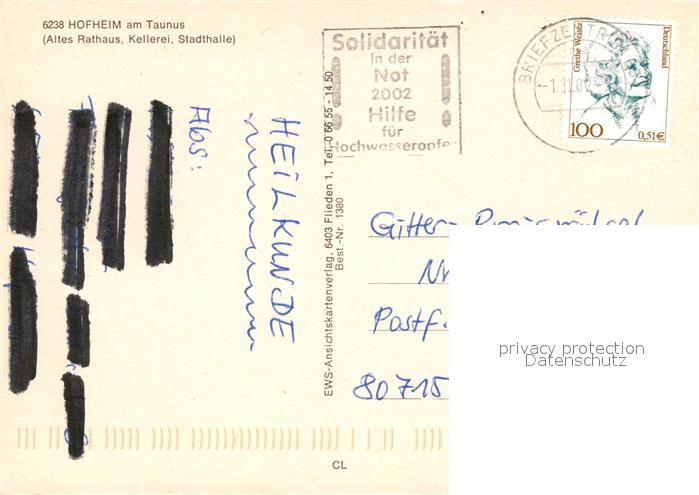 6238 HOFHEIM am Taunus
(Altes Rathaus, Kellerei, Stadthalle)
Solidarität
in der
Not
2002
Hilfe
für
Hochwasseropfer
BRIEFZENTRUM
Grethe Weiser
Deutschland
100
0,51€
Abs:
HEILKUNDE
EWS-Ansichtskartenverlag, 6403 Flieden 1, Tel. 0 66 55 - 14 50
Best.-Nr. 1380
Gitter-
Nr
Postf.
80715
privacy protection
Datenschutz
CL